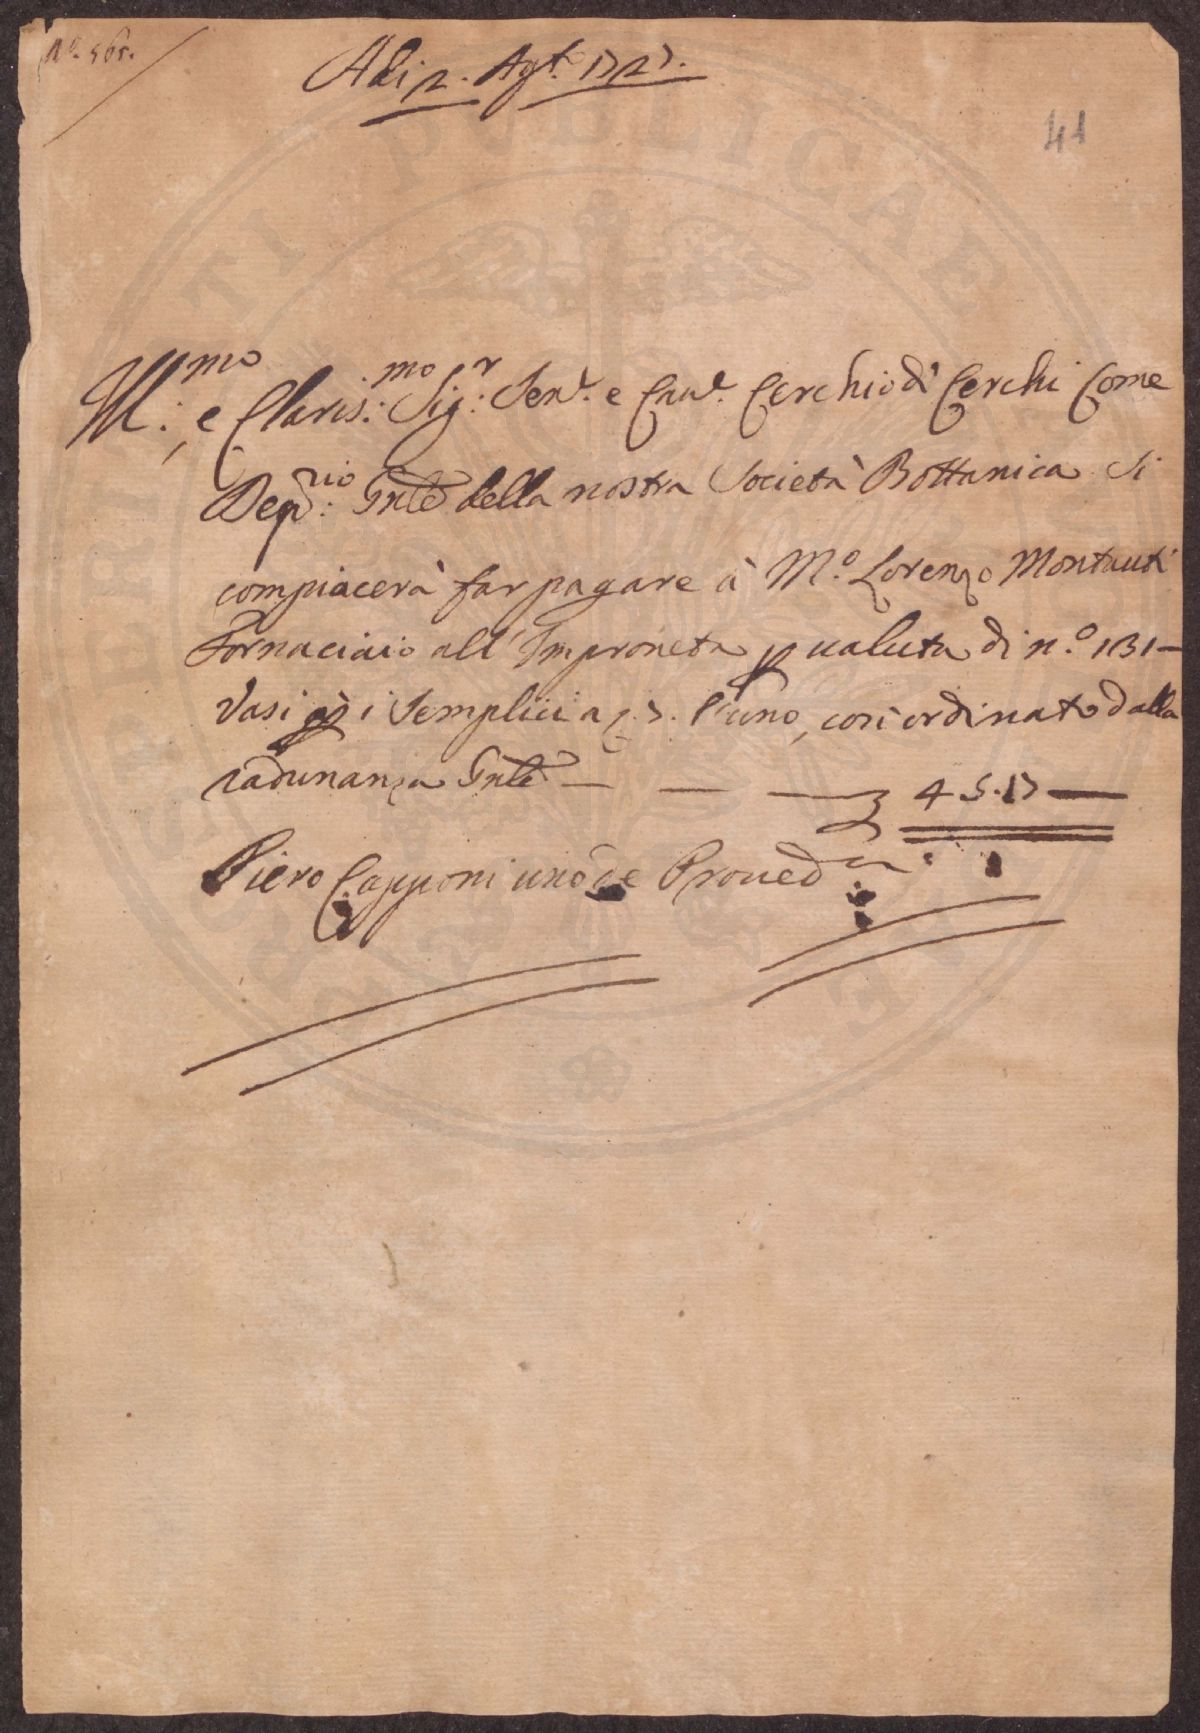 N.o 565.
Adi 2. Agt.o 1727.
41
Ill.mo e Claris.mo Sig.r Sen.e e Cau.e Cerchio di Cerchi Come
Dep.rio Gnle della nostra Società Bottanica Si
compiacerà far pagare à M.o Lorenzo Montauti
Fornaciaio all'Improneta p ualuta di n.o 131 —
Vasi p i Semplici a s. 7. l'uno, così ordinato dalla
radunanza Gnle — — — 45.17 —
Piero Capponi uno de Proued.ri